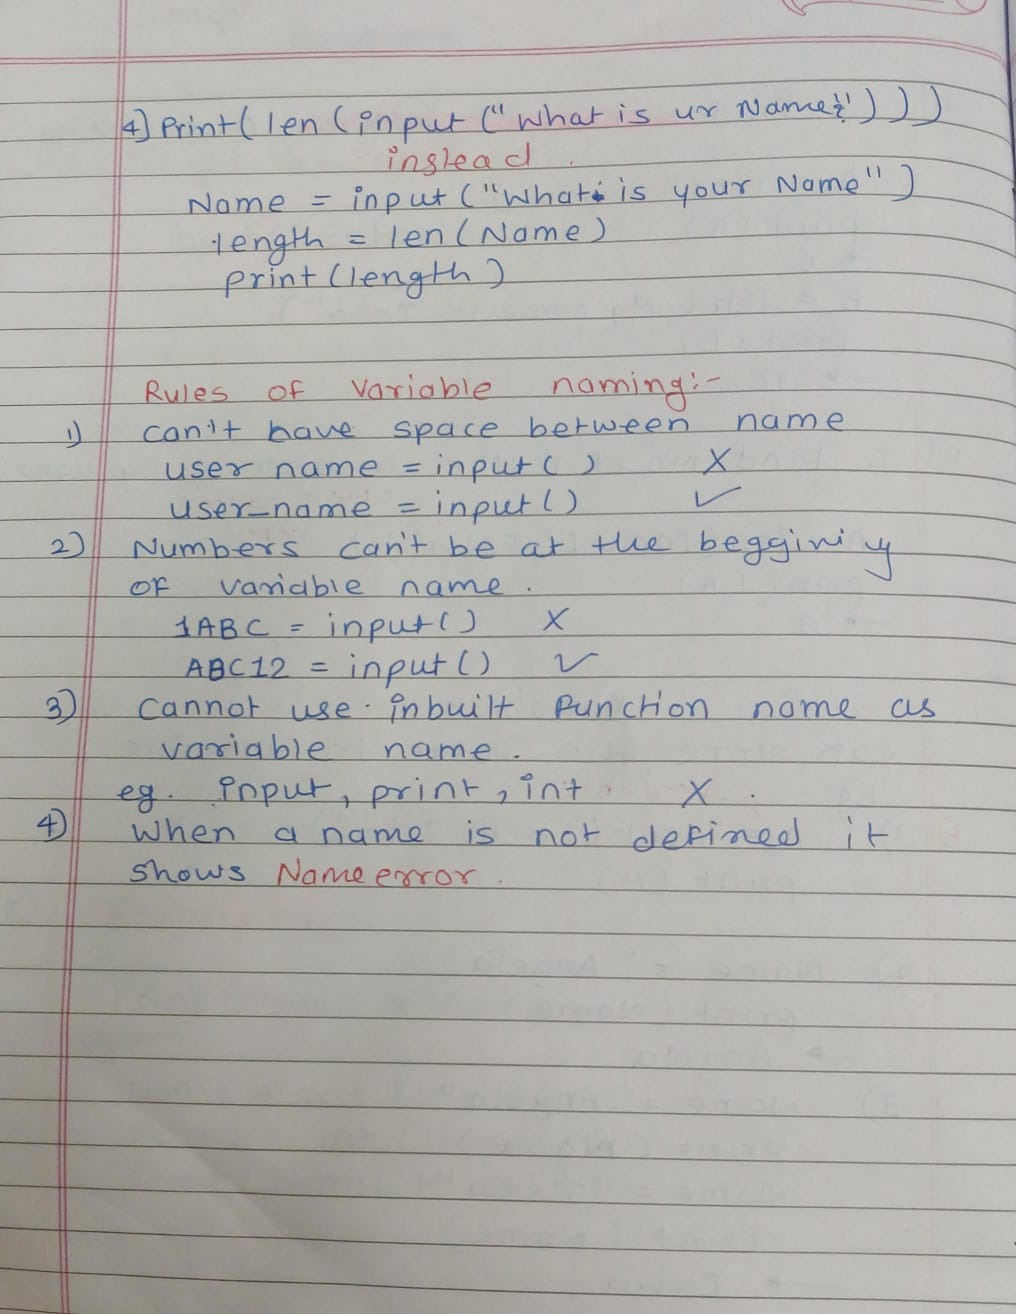 4) Print(len(input("What is ur Name?")))
instead.
Name = input("What is your Name")
length = len(Name)
print(length)
Rules of variable naming:-
1) can't have space between name
user name = input() X
user_name = input() ✓
2) Numbers can't be at the beggining
of variable name.
1ABC = input() X
ABC12 = input() ✓
3) Cannot use inbuilt function name as
variable name.
eg. input, print, int X.
4) When a name is not defined it
shows Nameerror.